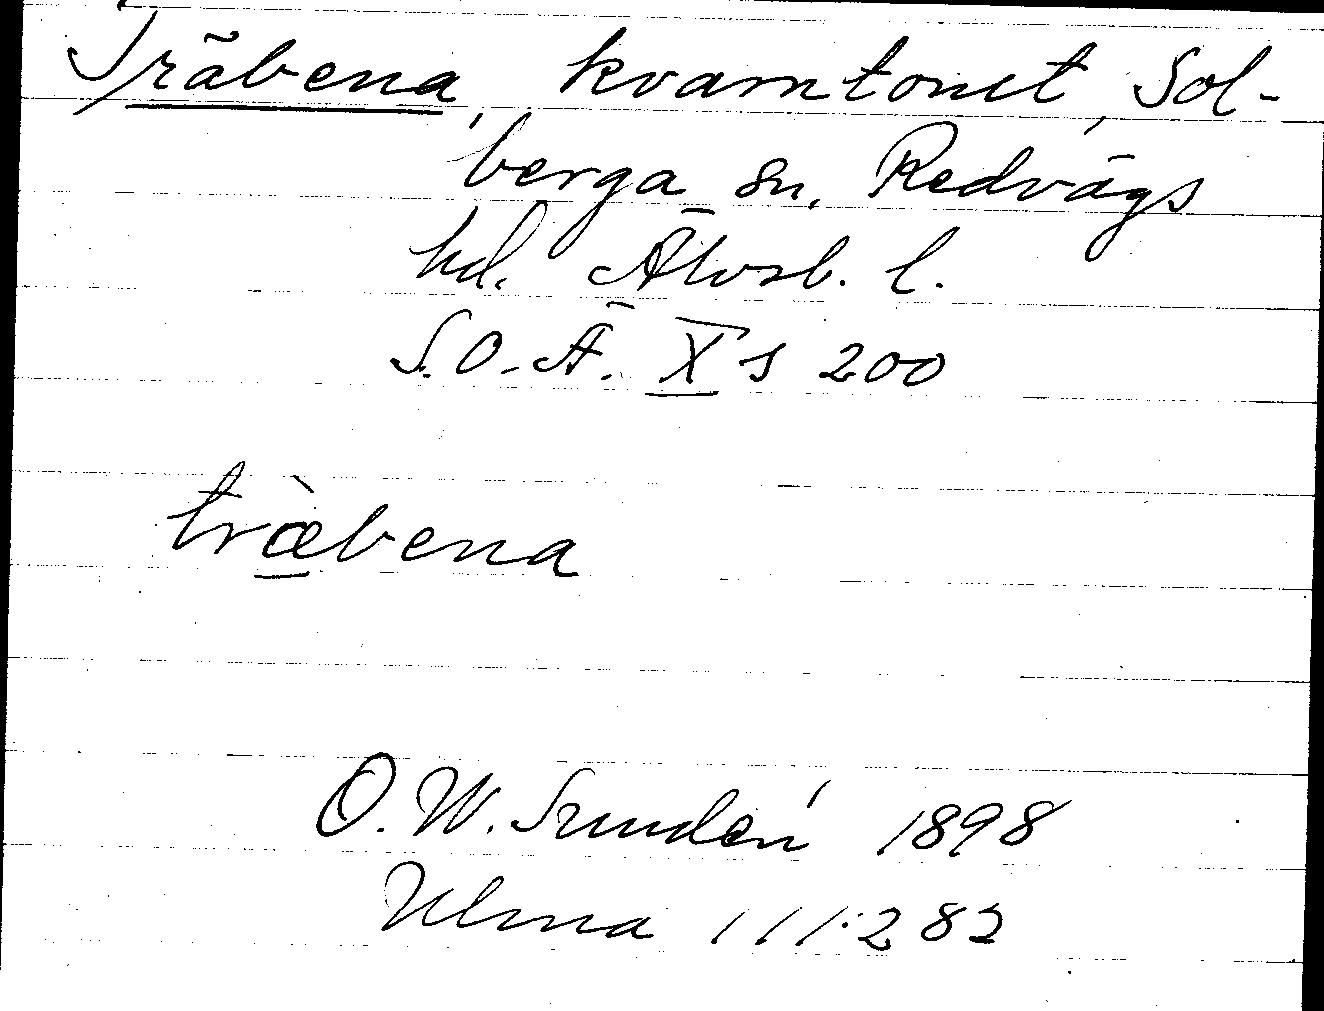 Träbena, kvarntomt, Sol-
berga sn. Redvägs
hd. Älvsb. l.
S.O.Ä. X s 200
træ̀bena
O. W. Sundén 1898
Ulma 111:282